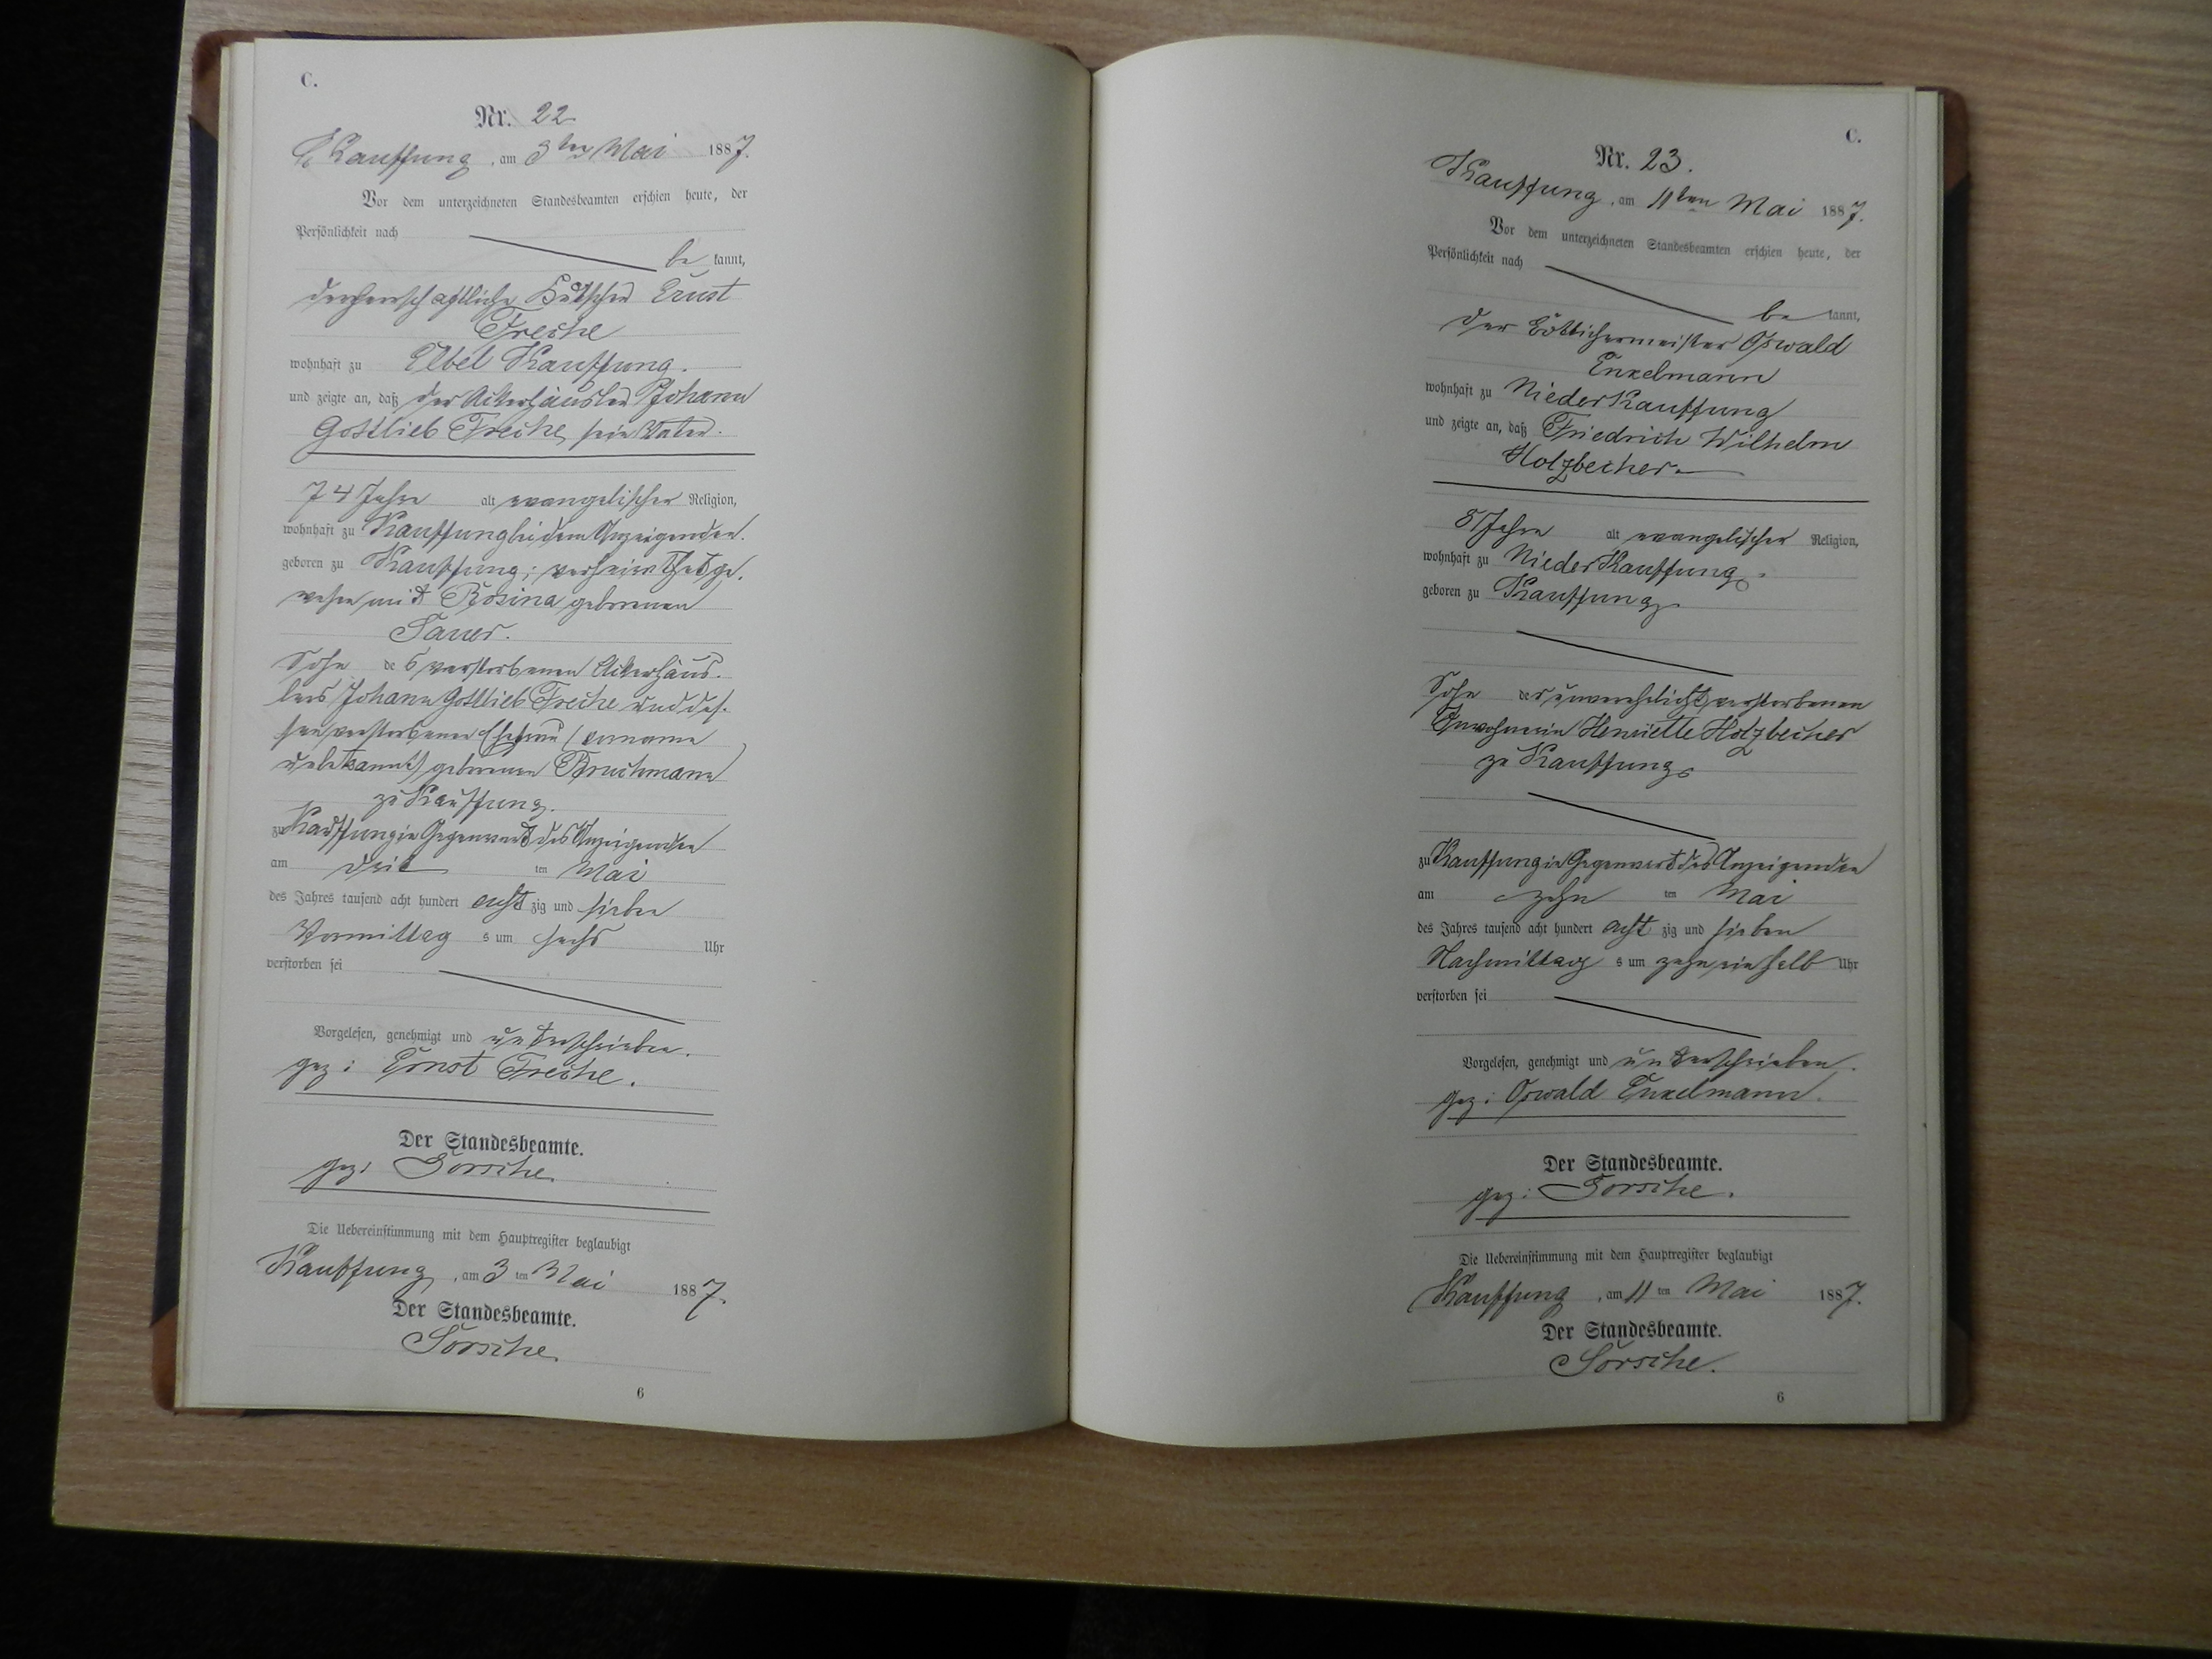 C.
Nr. 22.
Kauffung, am 3ten Mai 1887.
Vor dem unterzeichneten Standesbeamten erschien heute, der
Persönlichkeit nach
be kannt,
der herrschaftliche Kutscher Ernst
Fresche
wohnhaft zu Elbel Kauffung.
und zeigte an, daß der Ackerhäusler Johann
Gottlieb Fresche, sein Vater.
74 Jahre alt evangelischer Religion,
wohnhaft zu Kauffung bei dem Anzeigenden.
geboren zu Kauffung; verheirathet ge-
wesen mit Rosina geborenen
Sohn des verstorbenen Ackerhäus-
lers Johann Gottlieb Fresche und des-
sen verstorbenen Ehefrau (Vorname
unbekannt) geborenen Bruchmann
zu Kauffung.
zu Kauffung in Gegenwart des Anzeigenden
am drit ten Mai
des Jahres tausend acht hundert acht zig und sieben
Vormittag s um sechs Uhr
verstorben sei
Vorgelesen, genehmigt und unterschrieben.
gez: Ernst Fresche.
Der Standesbeamte.
gez:
Die Uebereinstimmung mit dem Hauptregister beglaubigt
Kauffung, am 3 ten Mai 1887.
Der Standesbeamte.
6
C.
Nr. 23.
Kauffung, am 11ten Mai 1887.
Vor dem unterzeichneten Standesbeamten erschien heute, der
Persönlichkeit nach
be kannt,
der Böttchermeister Oswald
Enkelmann
wohnhaft zu Nieder Kauffung
und zeigte an, daß Friedrich Wilhelm
Holzbecher
Jahre alt evangelischer Religion,
wohnhaft zu Nieder Kauffung.
geboren zu Kauffung.
Sohn der unverehelicht verstorbenen
Inwohnerin Henriette Holzbecher
zu Kauffung.
zu Kauffung in Gegenwart des Anzeigenden
am zehn ten Mai
des Jahres tausend acht hundert acht zig und sieben
Nachmittag s um zehn ein halb Uhr
verstorben sei
Vorgelesen, genehmigt und unterschrieben.
gez: Oswald Enkelmann.
Der Standesbeamte.
gez:
Die Uebereinstimmung mit dem Hauptregister beglaubigt
Kauffung, am 11 ten Mai 1887.
Der Standesbeamte.
6